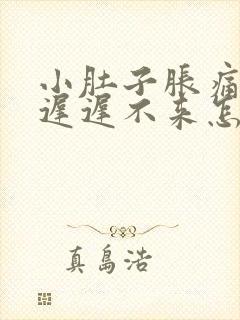 小肚子胀痛
迟迟不来怎
真島浩